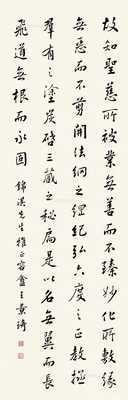 故知聖慧所被業無善而不臻妙化所敷緣
無惡而不剪開法網之綱紀弘六度之正教拯
羣有之塗炭啓三藏之秘扃是以名無翼而長
飛道無根而永固 錦 先生雅正 容盦王景琦